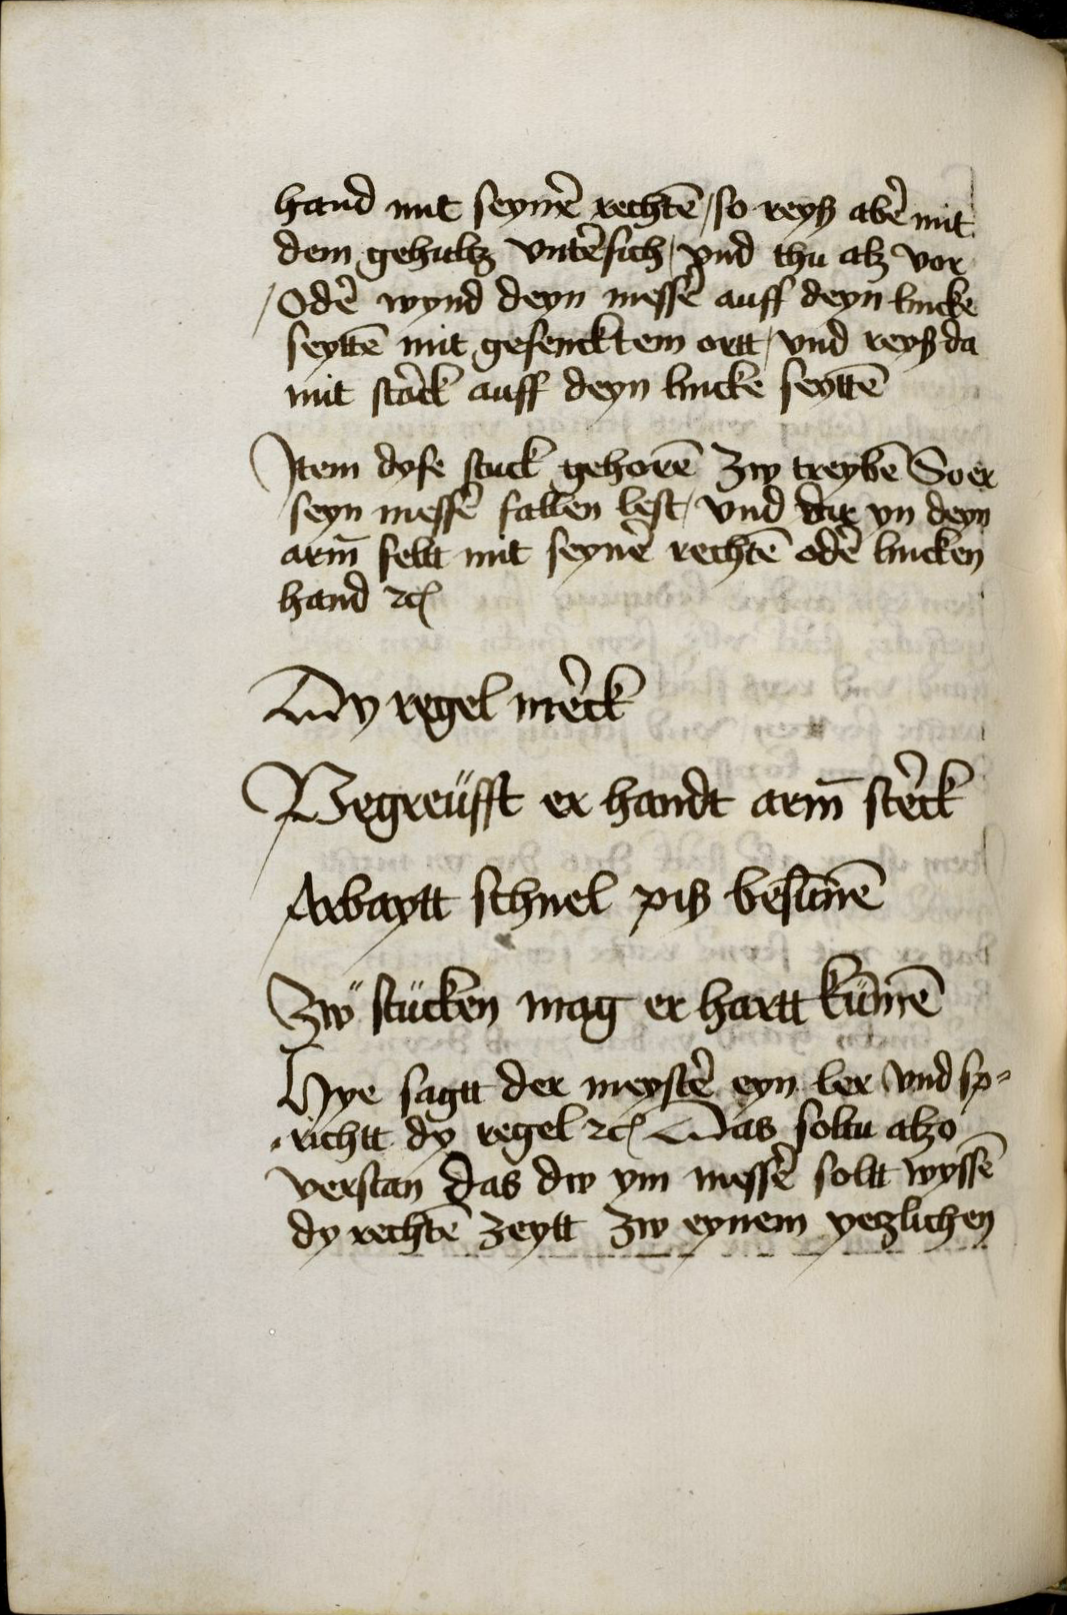 hand mit seynẽ rechtẽ / so reyß abẽ mit
dem gehultz vntẽsich / vnd thu alz vor
/ Odẽ wynd deyn messẽ auff deyn lincke
seyttẽ mit gesencktem ortt / vnd reyß da
mit starck auff deyn lincke seyttẽ
Item dyse stuck gehorẽ zw treybẽ So er
seyn messẽ fallen lest / vnd dir yn deyn
arm̄ fellt mit seynẽ rechtẽ odẽ lincken
hand ꝛc
Dy regel mẽck
Begreüfft er handt arm̄ stẽck
Arbaytt schnel piß besūnẽ
Zẅ stücken mag er hartt kūmẽ
Hye sagtt der meystẽ eyn ler vnd sp-
richtt dy regel ꝛc Das soltu alzo
verstan das dw ym messẽ soltt wyssẽ
dy rechtẽ zeytt zw eynem yezlichen